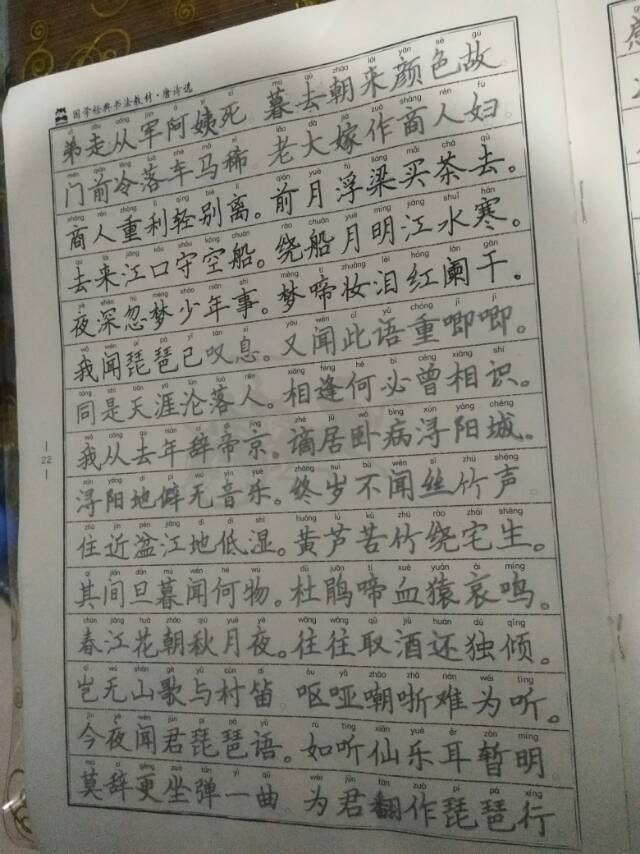 国学经典书法教材·唐诗选
弟走从军阿姨死 暮去朝来颜色故
门前冷落车马稀 老大嫁作商人妇
商人重利轻别离。前月浮梁买茶去。
去来江口守空船。绕船月明江水寒。
夜深忽梦少年事。梦啼妆泪红阑干。
我闻琵琶已叹息。又闻此语重唧唧。
同是天涯沦落人。相逢何必曾相识。
我从去年辞帝京。谪居卧病浔阳城。
浔阳地僻无音乐。终岁不闻丝竹声
住近湓江地低湿。黄芦苦竹绕宅生。
其间旦暮闻何物。杜鹃啼血猿哀鸣。
春江花朝秋月夜。往往取酒还独倾。
岂无山歌与村笛 呕哑嘲哳难为听。
今夜闻君琵琶语。如听仙乐耳暂明
莫辞更坐弹一曲 为君翻作琵琶行
22